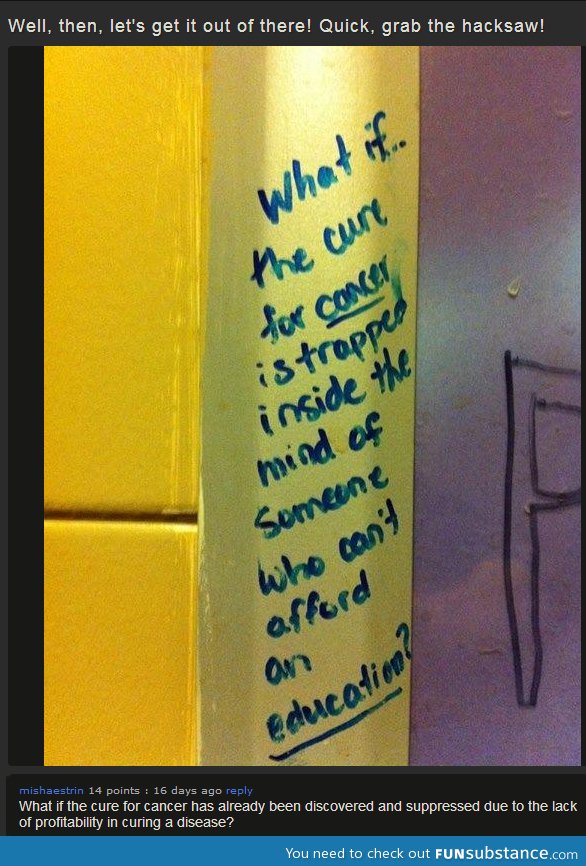 Well, then, let's get it out of there! Quick, grab the hacksaw!
What if..
the cure
for cancer
is trapped
inside the
mind of
someone
who can't
afford
an
education?
mishaestrin 14 points : 16 days ago reply
What if the cure for cancer has already been discovered and suppressed due to the lack
of profitability in curing a disease?
You need to check out FUNsubstance.com